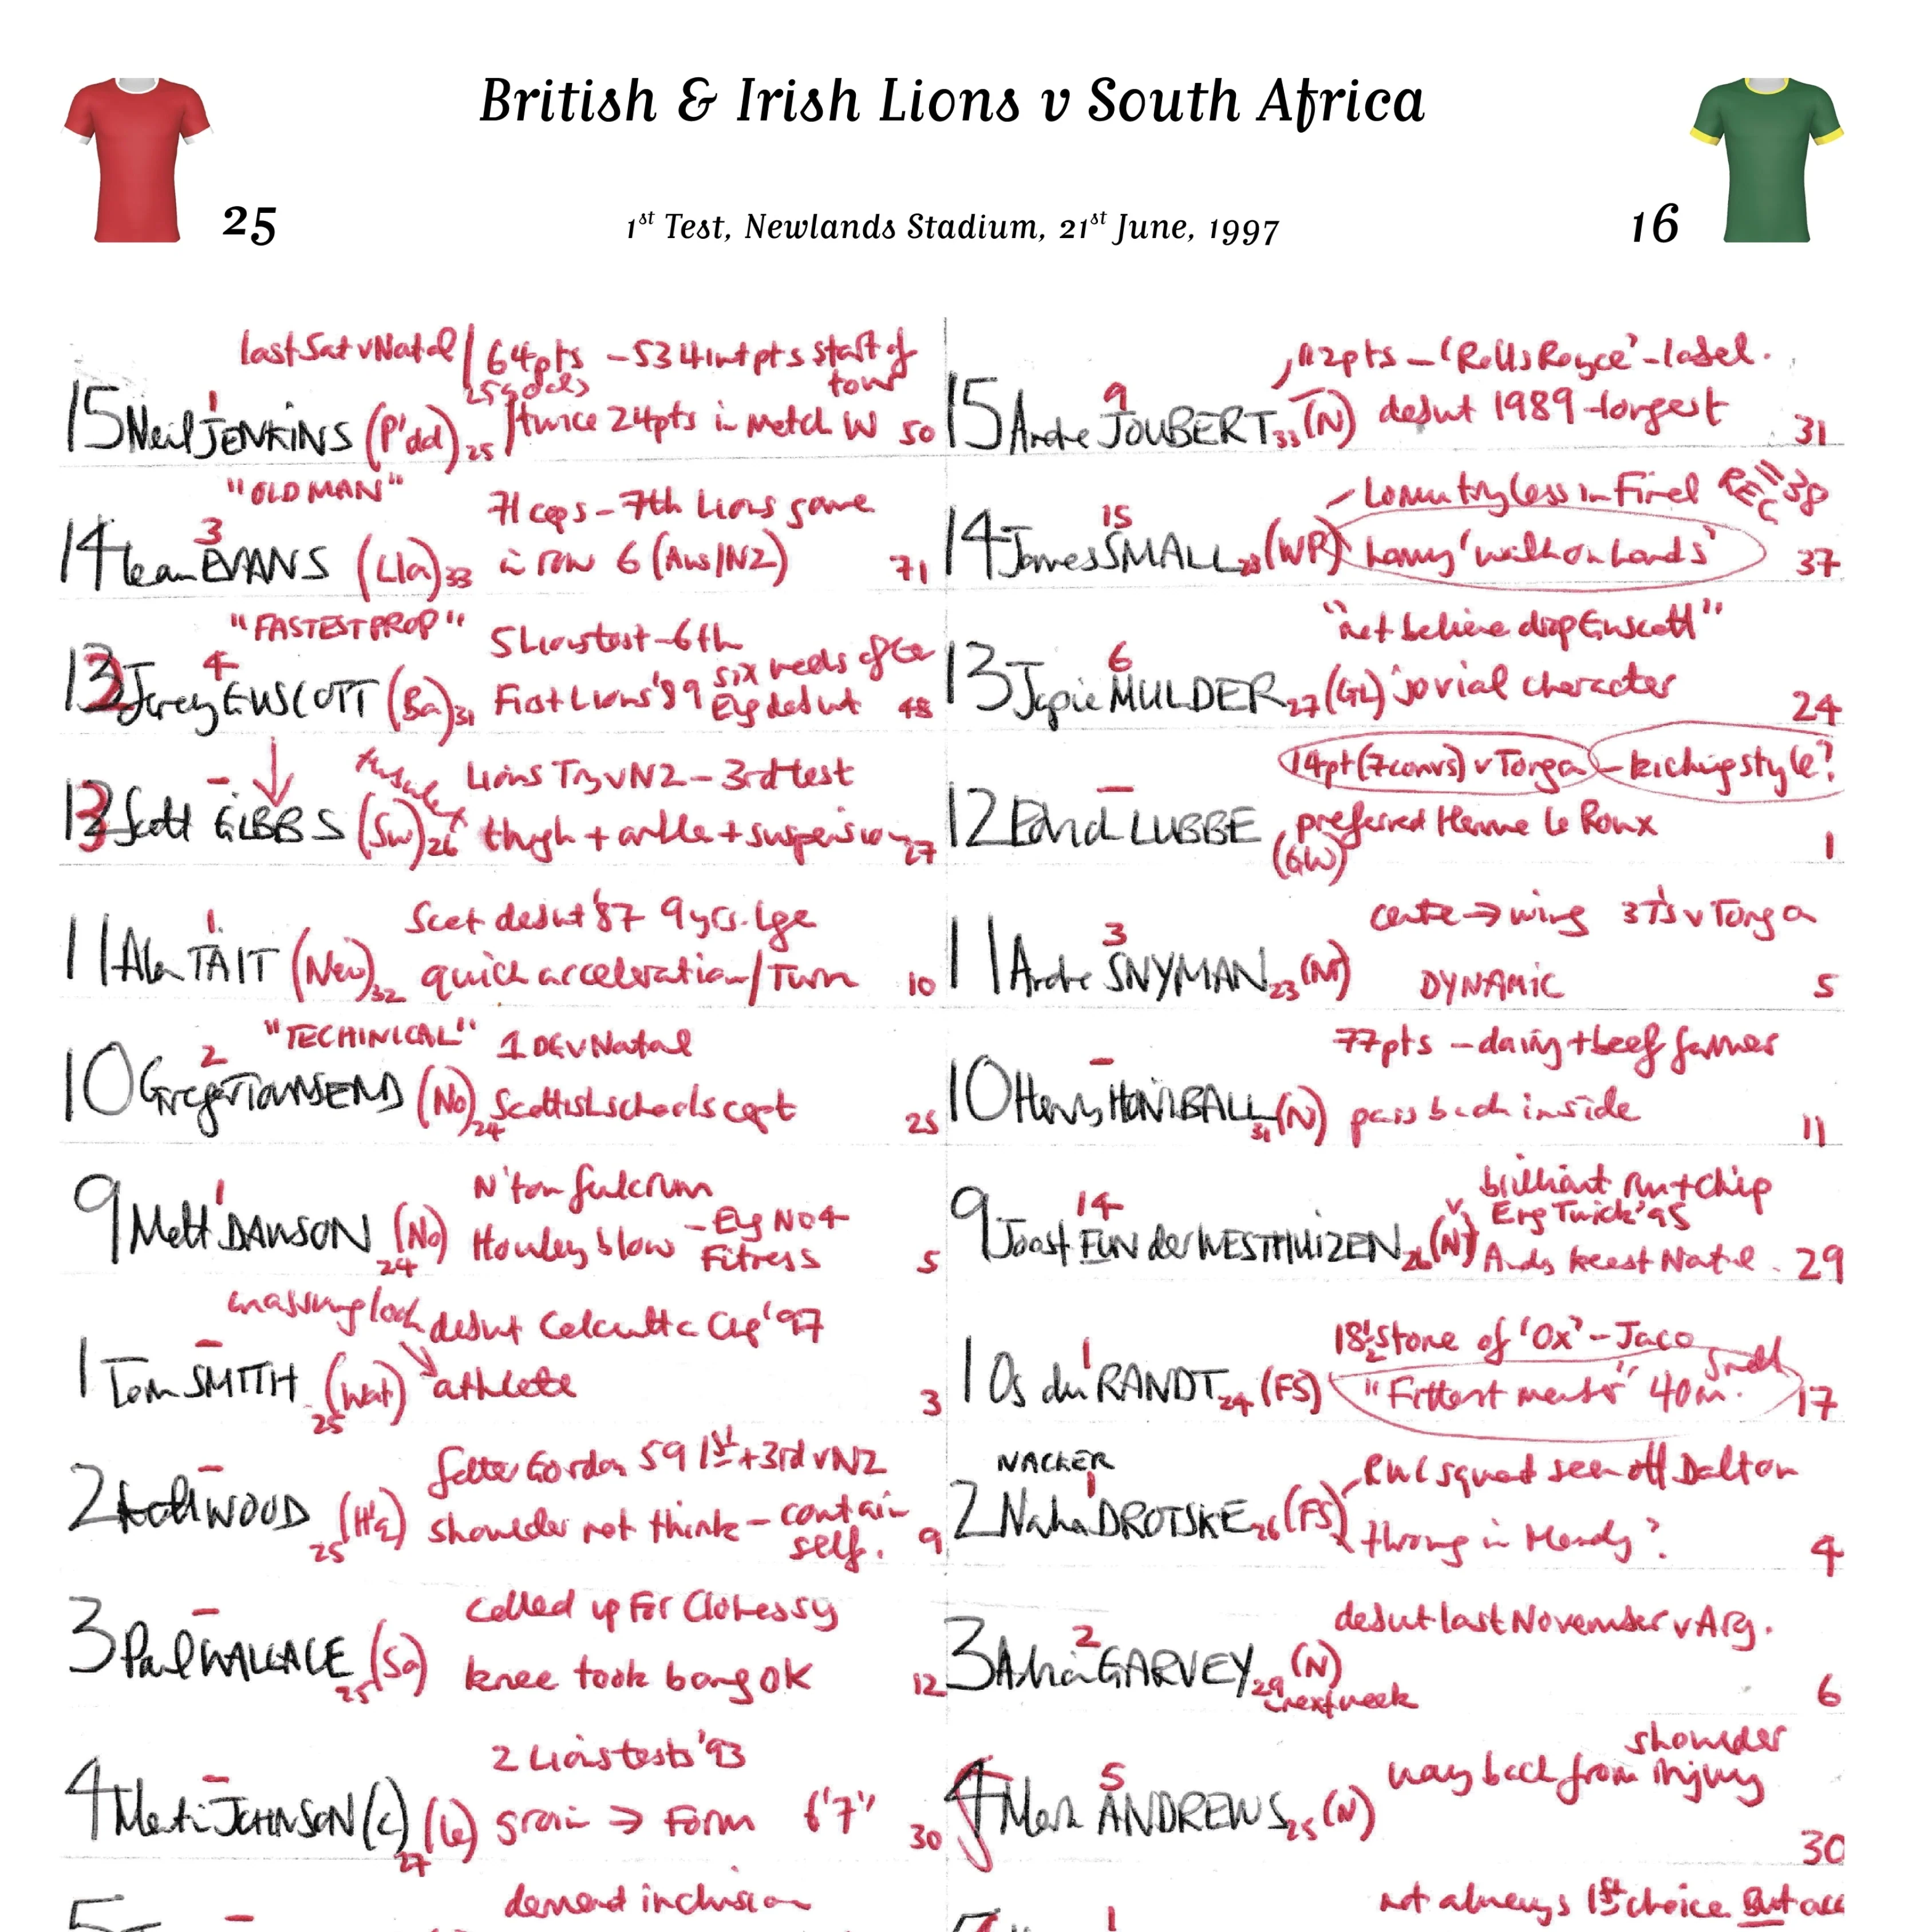 British & Irish Lions v South Africa
25
1st Test, Newlands Stadium, 21st June, 1997
16
last Sat v Natal / 64pts - 53 4 int pts start of tour
25 goals
15 Neil JENKINS (P'dd) 25 / twice 24pts in match W 50
1
"OLD MAN"
71 caps - 7th Lions game
3
14 Ieuan EVANS (Lla) 33 in row 6 (Aus/NZ) 71
"FASTEST PROP"
5 Lions test - 6th
4
13 Jerey GUSCOTT (Ba) 31 First Lions '89 six weeks after Eng debut 48
Lions Try v NZ - 3rd test
-
13 Scott GIBBS (Sw) 26 thigh + ankle + suspension 27
Scot debut '87 9 yrs. lge
1
11 Alan TAIT (New) 32 quick acceleration/Turn 10
"TECHINICAL" 1 DG v Natal
2
10 Gregor TOWNSEND (No) 24 Scottish schools capt 25
N'ton fulcrum
1
9 Matt DAWSON (No) 24 Howley blow - Eng No 4 Fitness 5
debut Calcutta Cup '97
-
1 Tom SMITH (Wat) 25 athlete 3
father Gordon 59 1st + 3rd v NZ
-
2 Keith WOOD (H'q) 25 shoulder not think - contain self. 9
called up For Clohessy
-
3 Paul WALLACE (Sa) 25 knee took bang OK 12
2 Lions tests '93
-
4 Martin JOHNSON (c) (Le) 27 groin → Form 6'7" 30
demand inclusion
5
-
112pts - 'Rolls Royce' - label.
9
15 Andre JOUBERT 33 (N) debut 1989 - longest 31
- Lomu tryless in Final REC 11 38
15
14 James SMALL 28 (WP) harry 'walk on hands' 37
"not believe drop Guscott"
6
13 Japie MULDER 27 (GL) jovial character 24
14pt (7 convs) v Tonga - kicking style?
-
12 Edrich LUBBE (GW) preferred Hennie Le Roux 1
centre → wing 3T's v Tonga
3
11 Andre SNYMAN 23 (NT) DYNAMIC 5
77pts - dairy + beef farmer
-
10 Henry HONIBALL 31 (N) pass back inside 11
brilliant Run + Chip
Eng Twick '95
14
9 Joost FUN der WESTHUIZEN 26 (NT) Andy keast Natal. 29
18½ stone of 'Ox' - Jaco
1
1 Os du RANDT 24 (FS) "Fittest member" 40m. 17
NACKER
RWC squad seen off Dalton
1
2 Naka DROTSKE 26 (FS) throwing in Mondy? 4
debut last November v Arg.
2
3 Adrian GARVEY 29 (N) next week 6
shoulder
way back from injury
5
4 Mark ANDREWS 25 (N) 30
not always 1st choice But
1